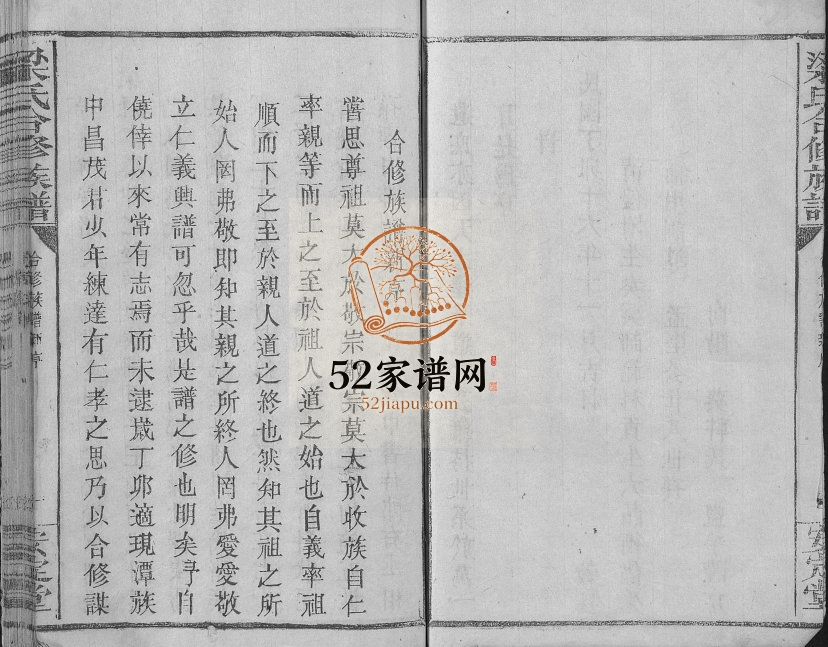 合修族譜新序
嘗思尊祖莫大於敬宗敬宗莫大於收族自仁
率親等而上之至於祖人道之始也自義率祖
順而下之至於親人道之終也然知其祖之所
始人罔弗敬即知其親之所終人罔弗愛愛敬
立仁義興譜可忽乎哉是譜之修也明矣予自
僥倖以來常有志焉而未逮歲丁卯適現潭族
中昌茂君少年練達有仁孝之思乃以合修謀
梁氏合修族譜
合修族譜新序
安定堂
梁氏合修族譜
安定堂
52家谱网
52jiapu.com